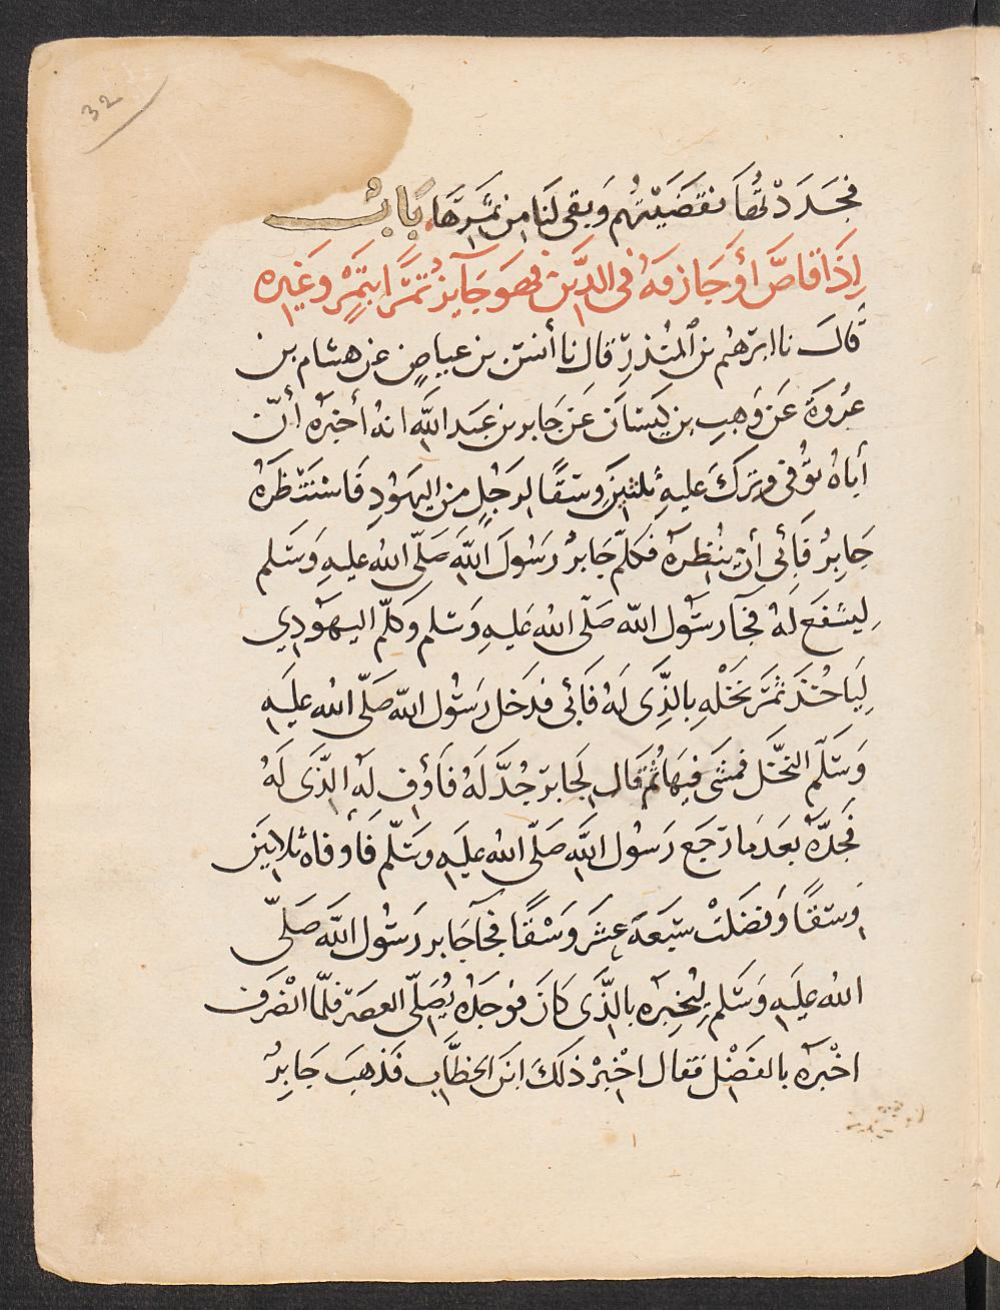 32
فَجَدَدْتُهَا فَقَضَيْتُهُم وَبقى لَنَا مِن تَمْرِهَا. بَابُ
إِذَا قَاصَّ أَوْ جَازفَهُ فى الدَّيْن فهوَ جَآيِز تمْرًا بتَمْرٍ وَغَيْرِه
قَالَ نا ابرٰهيم بن المنْذِرِ قال نا أنس بن عياضٍ عن هشام بن
عُرْوَةَ عَن وَهبِ بن كَيسَانَ عَن جَابر بن عَبد اللَّه انهُ أخبَرَه أنّ
أباهُ تُوُفّى وترَكَ عليهِ ثلثينَ وَسقًا لرَجُلٍ من اليهَوُدِ فَاسْتَنْظَرَهُ
جَابِرُ فَأَبَى أن يُنظِرَهُ فكلّم جَابرُ رَسُولَ اللَّه صَلّى الله عليهِ وَسَلم
لِيشفَع لَهُ فجآ رسُول الله صَلّى الله عَليهِ وَسَلم وكلّم اليهَوُدِي
لِيَاخُذَ ثَمَرَ نَخْلِهِ بالذِى لَهُ فَأَبى فدَخل رَسُول الله صَلّى الله عليَه
وَسَلّم النخْل فمشَى فيهَا ثُمّ قَال لجابر جُدَّ لَهُ فَأَوْفِ لَهِ الذَى لَهُ
فَجَدَّهُ بَعدَ مَا رَجَع رَسُول اللَّه صَلّى الله عليَه وسَلّم فَأَوفاه ثلاثِينَ
وَسقًا وَفضَلَتْ سَبعَة عَشَر وَسْقًا فجآ جَابر رَسُول اللَّه صَلّى
الله عليَه وَسَلم ليُخبِرَه بالذَّى كانَ فوَجَدَهُ يُصَلّى العصَر فلمّا انْصَرَف
اخْبَرَهُ بالفَضْل فقال اخْبِرْ ذلكَ ابن الخطَّاب فَذهبَ جَابِرُ